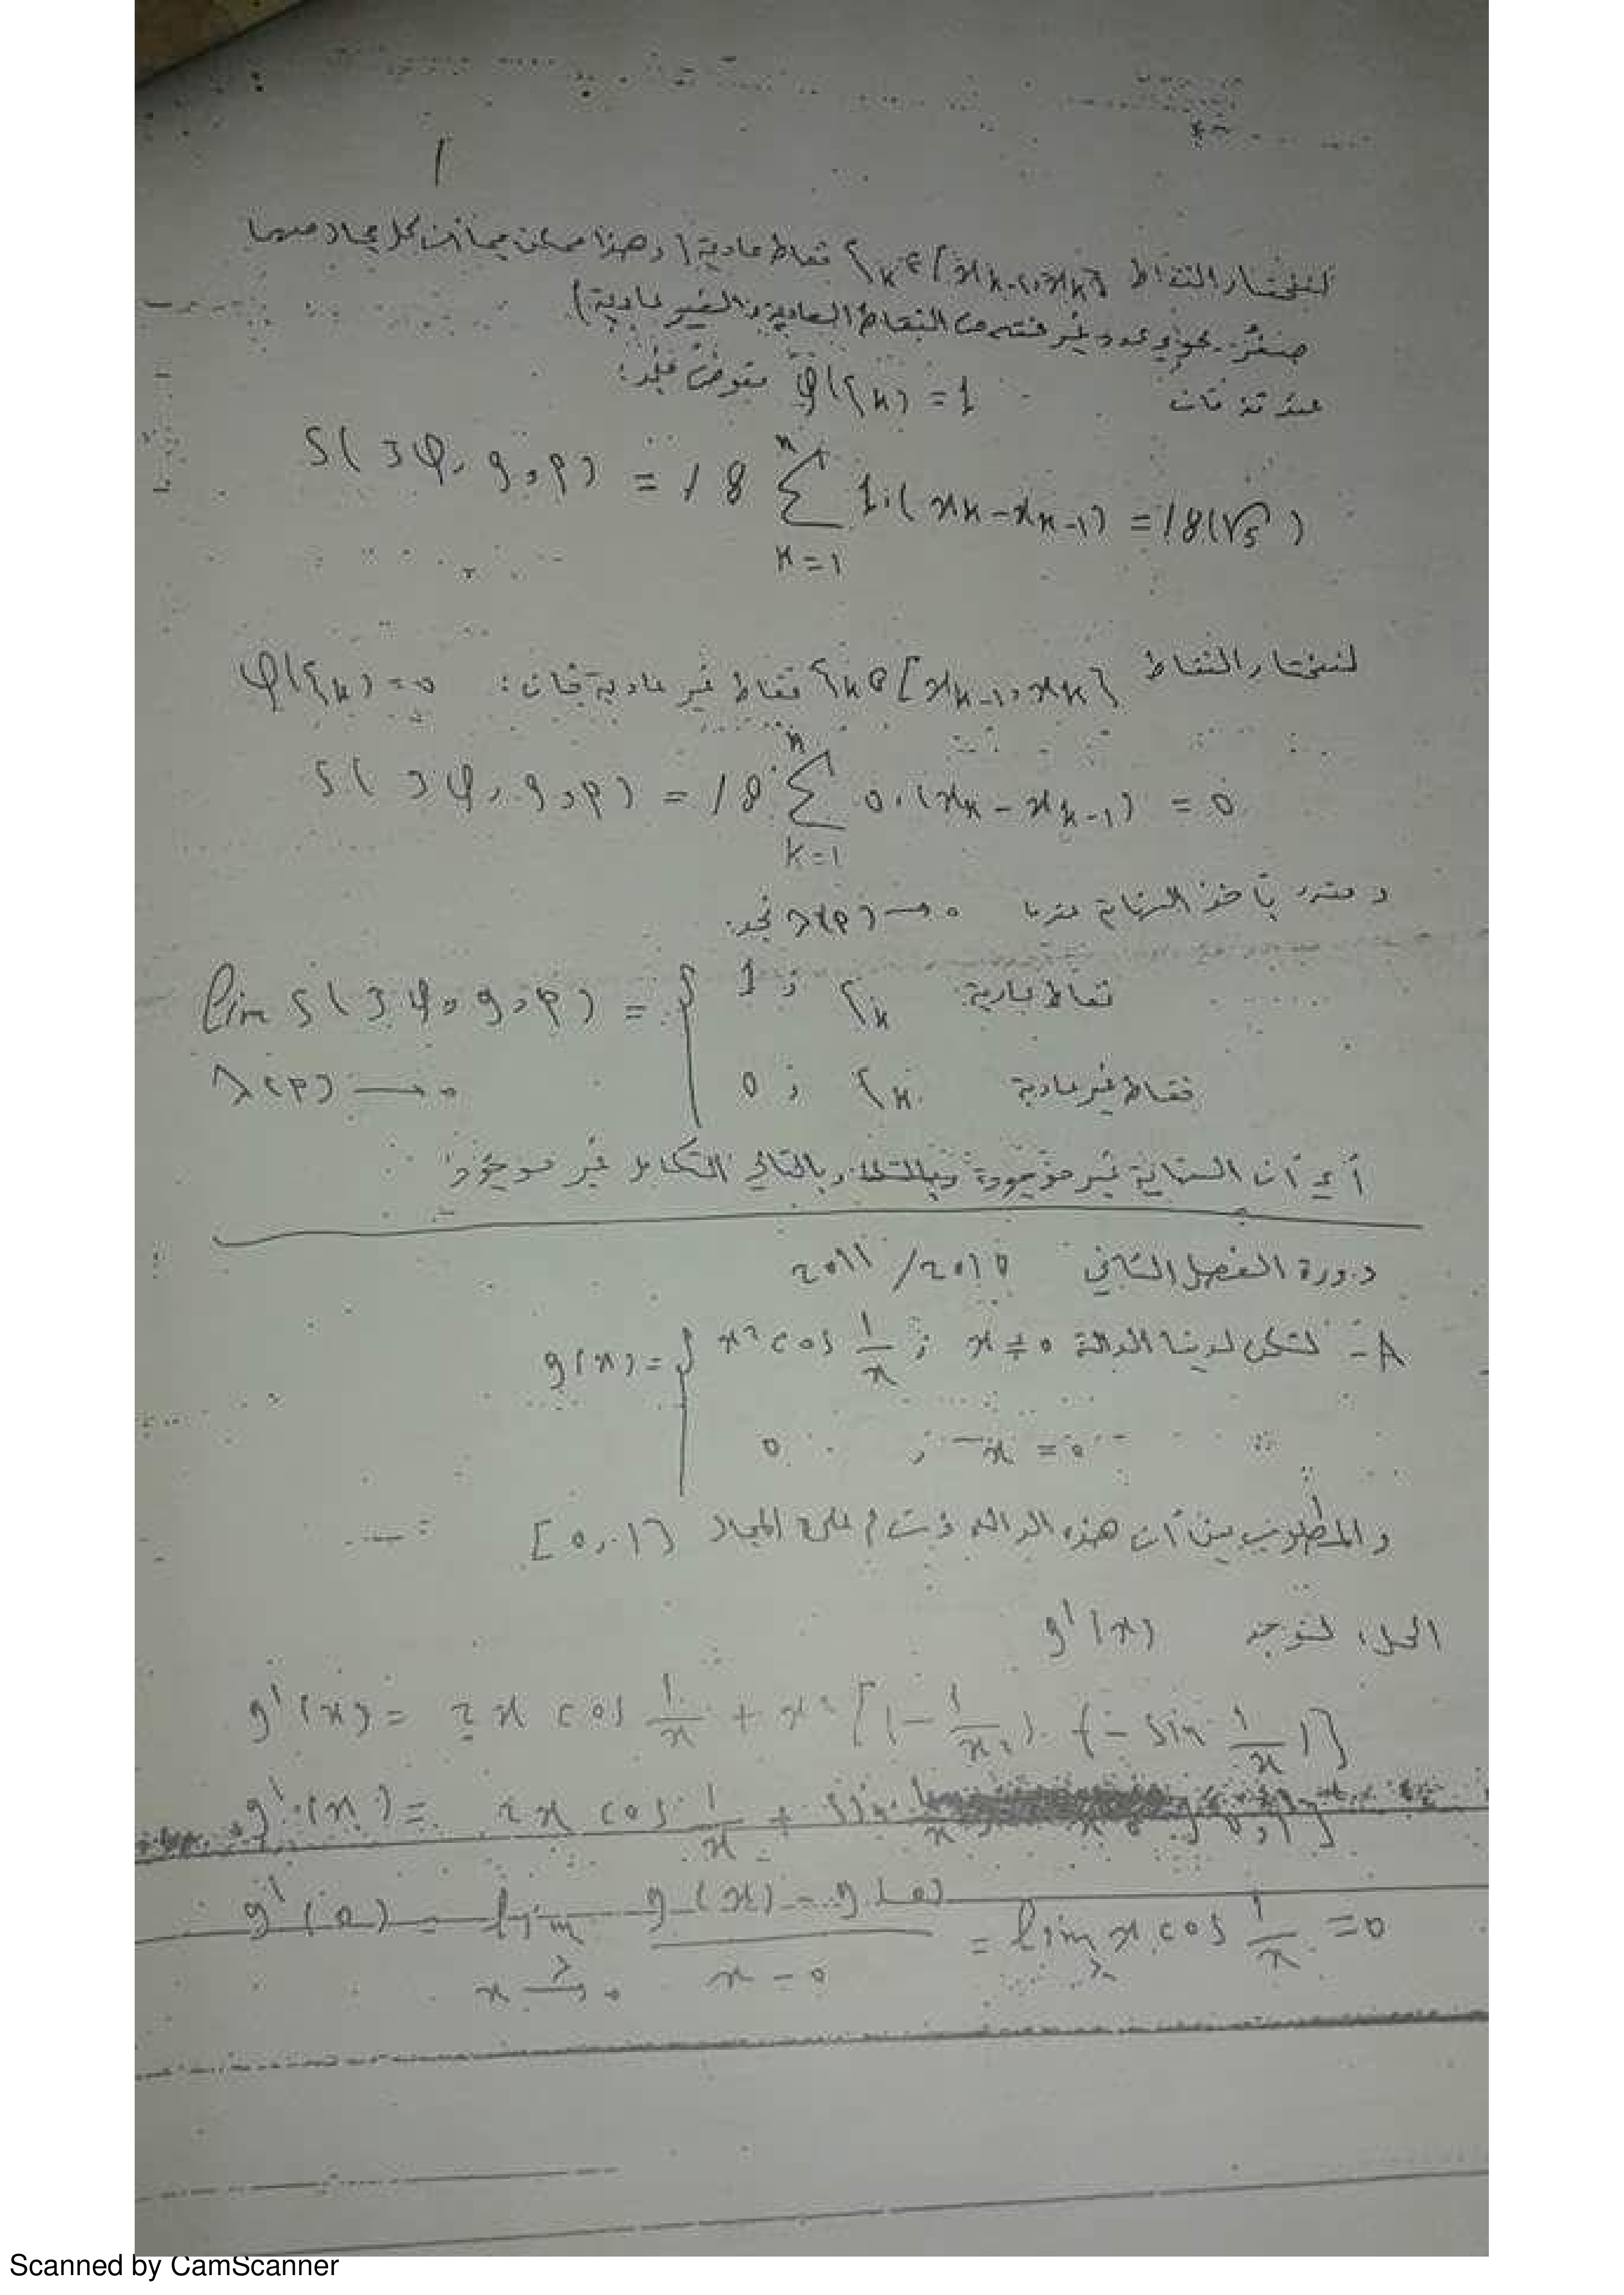 لنختار النقاط ξk ∈ [xk-1, xk] نقاط عادية (وهذا ممكن بما أن كل مجال مهما
صغر يحوي عدد غير منته من النقاط العادية والغير عادية)
عندئذ فان φ(ξk) = 1 نعوض نجد:
S(3φ, g, p) = 18 Σ 1.(xk - xk-1) = 18(√5)
n
k=1
لنختار النقاط ξk ∈ [xk-1, xk] نقاط غير عادية فان: φ(ξk) = 0
S(3φ, g, p) = 18 Σ 0.(xk - xk-1) = 0
n
k=1
وعند بأخذ النهاية عندما λ(p) → 0 نجد:
lim S(3φ, g, p) = { 1 ; ξk نقاط عادية
λ(p) → 0 0 ; ξk نقاط غير عادية
أي أن النهاية غير موجودة وبالتالي التكامل غير موجود
دورة الفصل الثاني 2010/2011
A - لتكن لدينا الدالة g(x) = { x² cos 1/x ; x ≠ 0
0 ; x = 0
والمطلوب بين أن هذه الدالة ذ ت م على المجال [0, 1]
الحل: لنوجد g'(x)
g'(x) = 2x cos 1/x + x² [(-1/x²) . (-sin 1/x)]
g'(x) = 2x cos 1/x + sin 1/x
g'(0) = lim g(x) - g(0) / x - 0 = lim x cos 1/x = 0
x → 0
Scanned by CamScanner